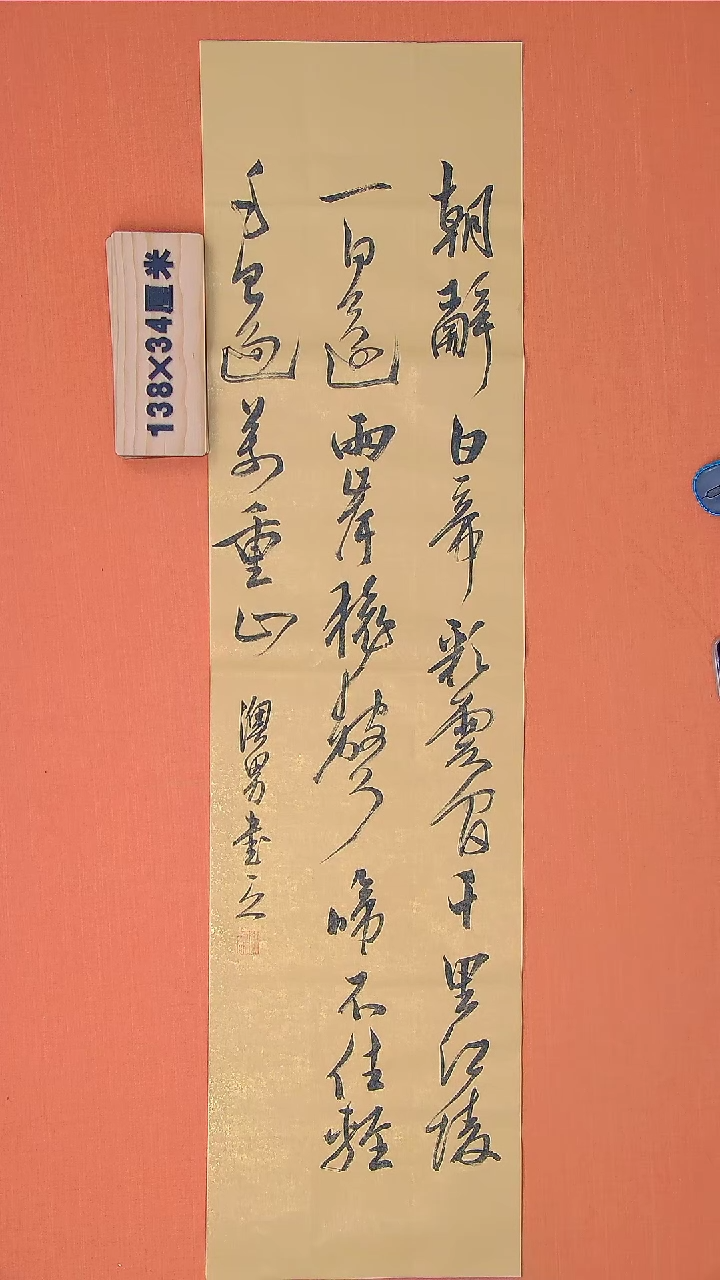 朝辭白帝彩雲間千里江陵
一日還兩岸猿聲啼不住輕
舟已過萬重山
澳男書之
138×34厘米